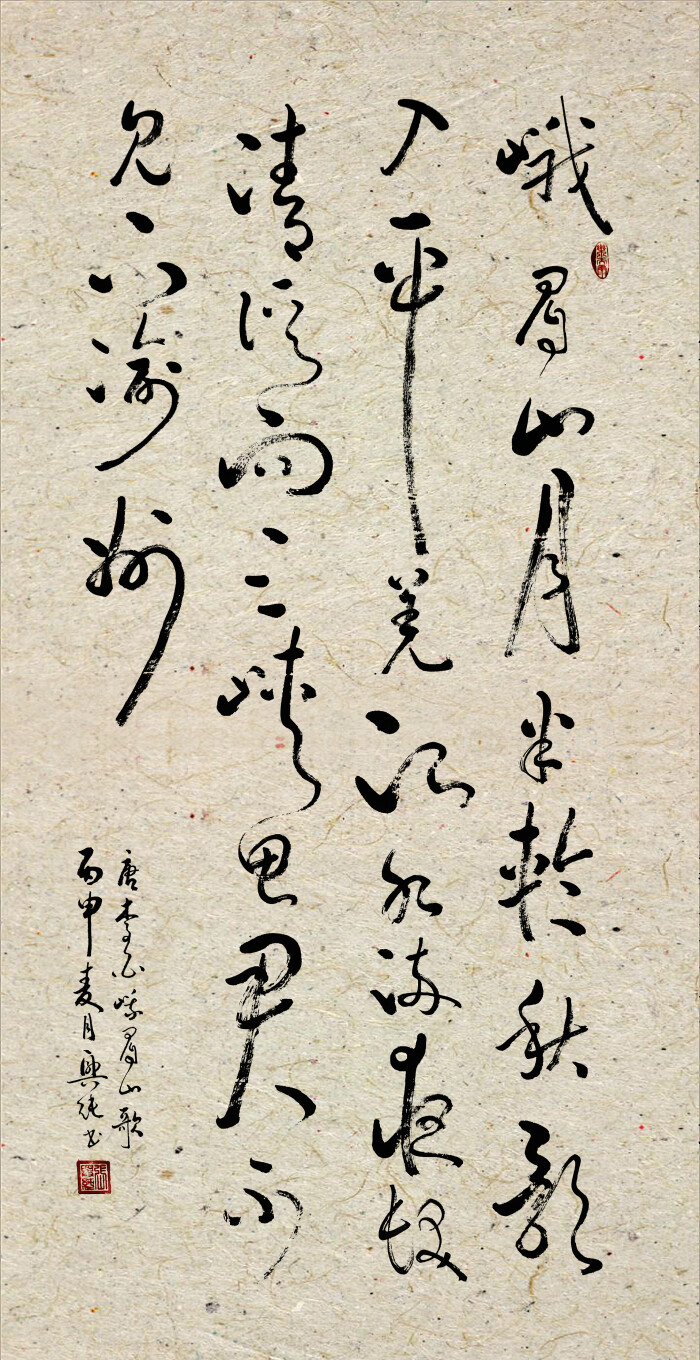 峨眉山月半輪秋影
入平羌江水流夜發
清溪向三峽思君不
見下渝州
唐李白峨眉山歌
丙申麦月興純书